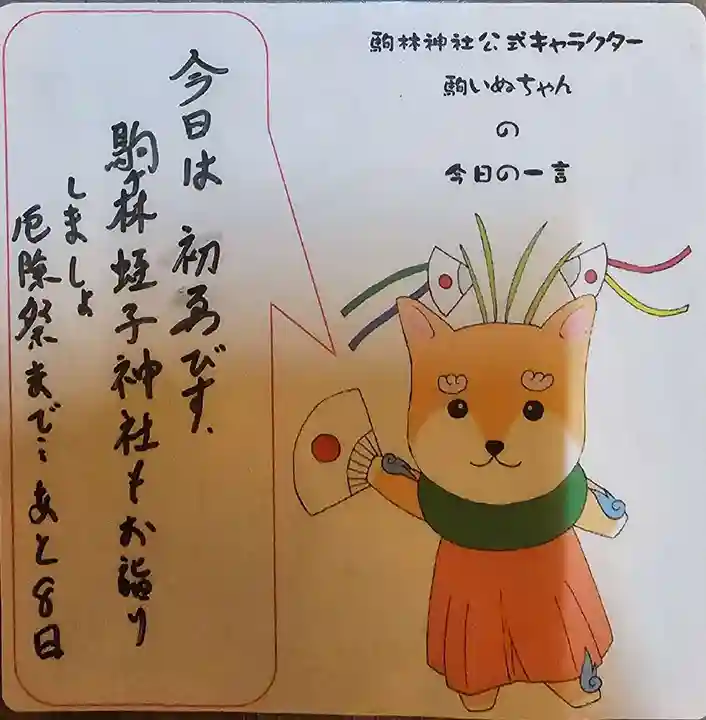 駒林神社公式キャラクター
駒いぬちゃん
の
今日の一言
今日は 初ゑびす、
駒林蛭子神社もお詣り
しましょ
厄除祭まで:あと8日